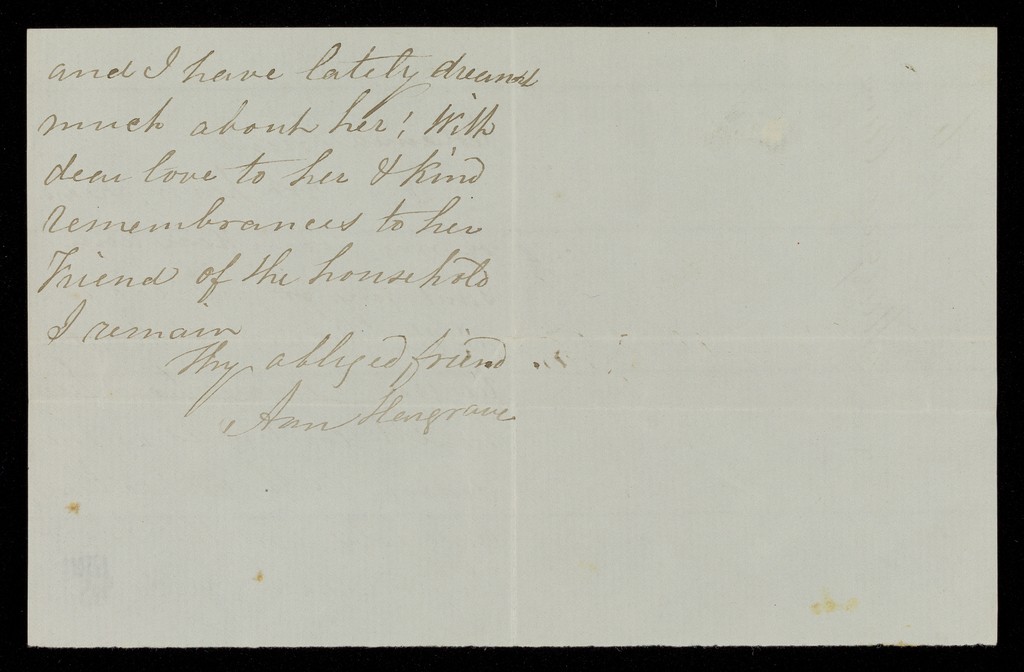 and I have lately dreamt
much about her! With
dear love to her & kind
remembrances to her
Friend of the household
I remain
Thy obliged friend
Ann Hengrave